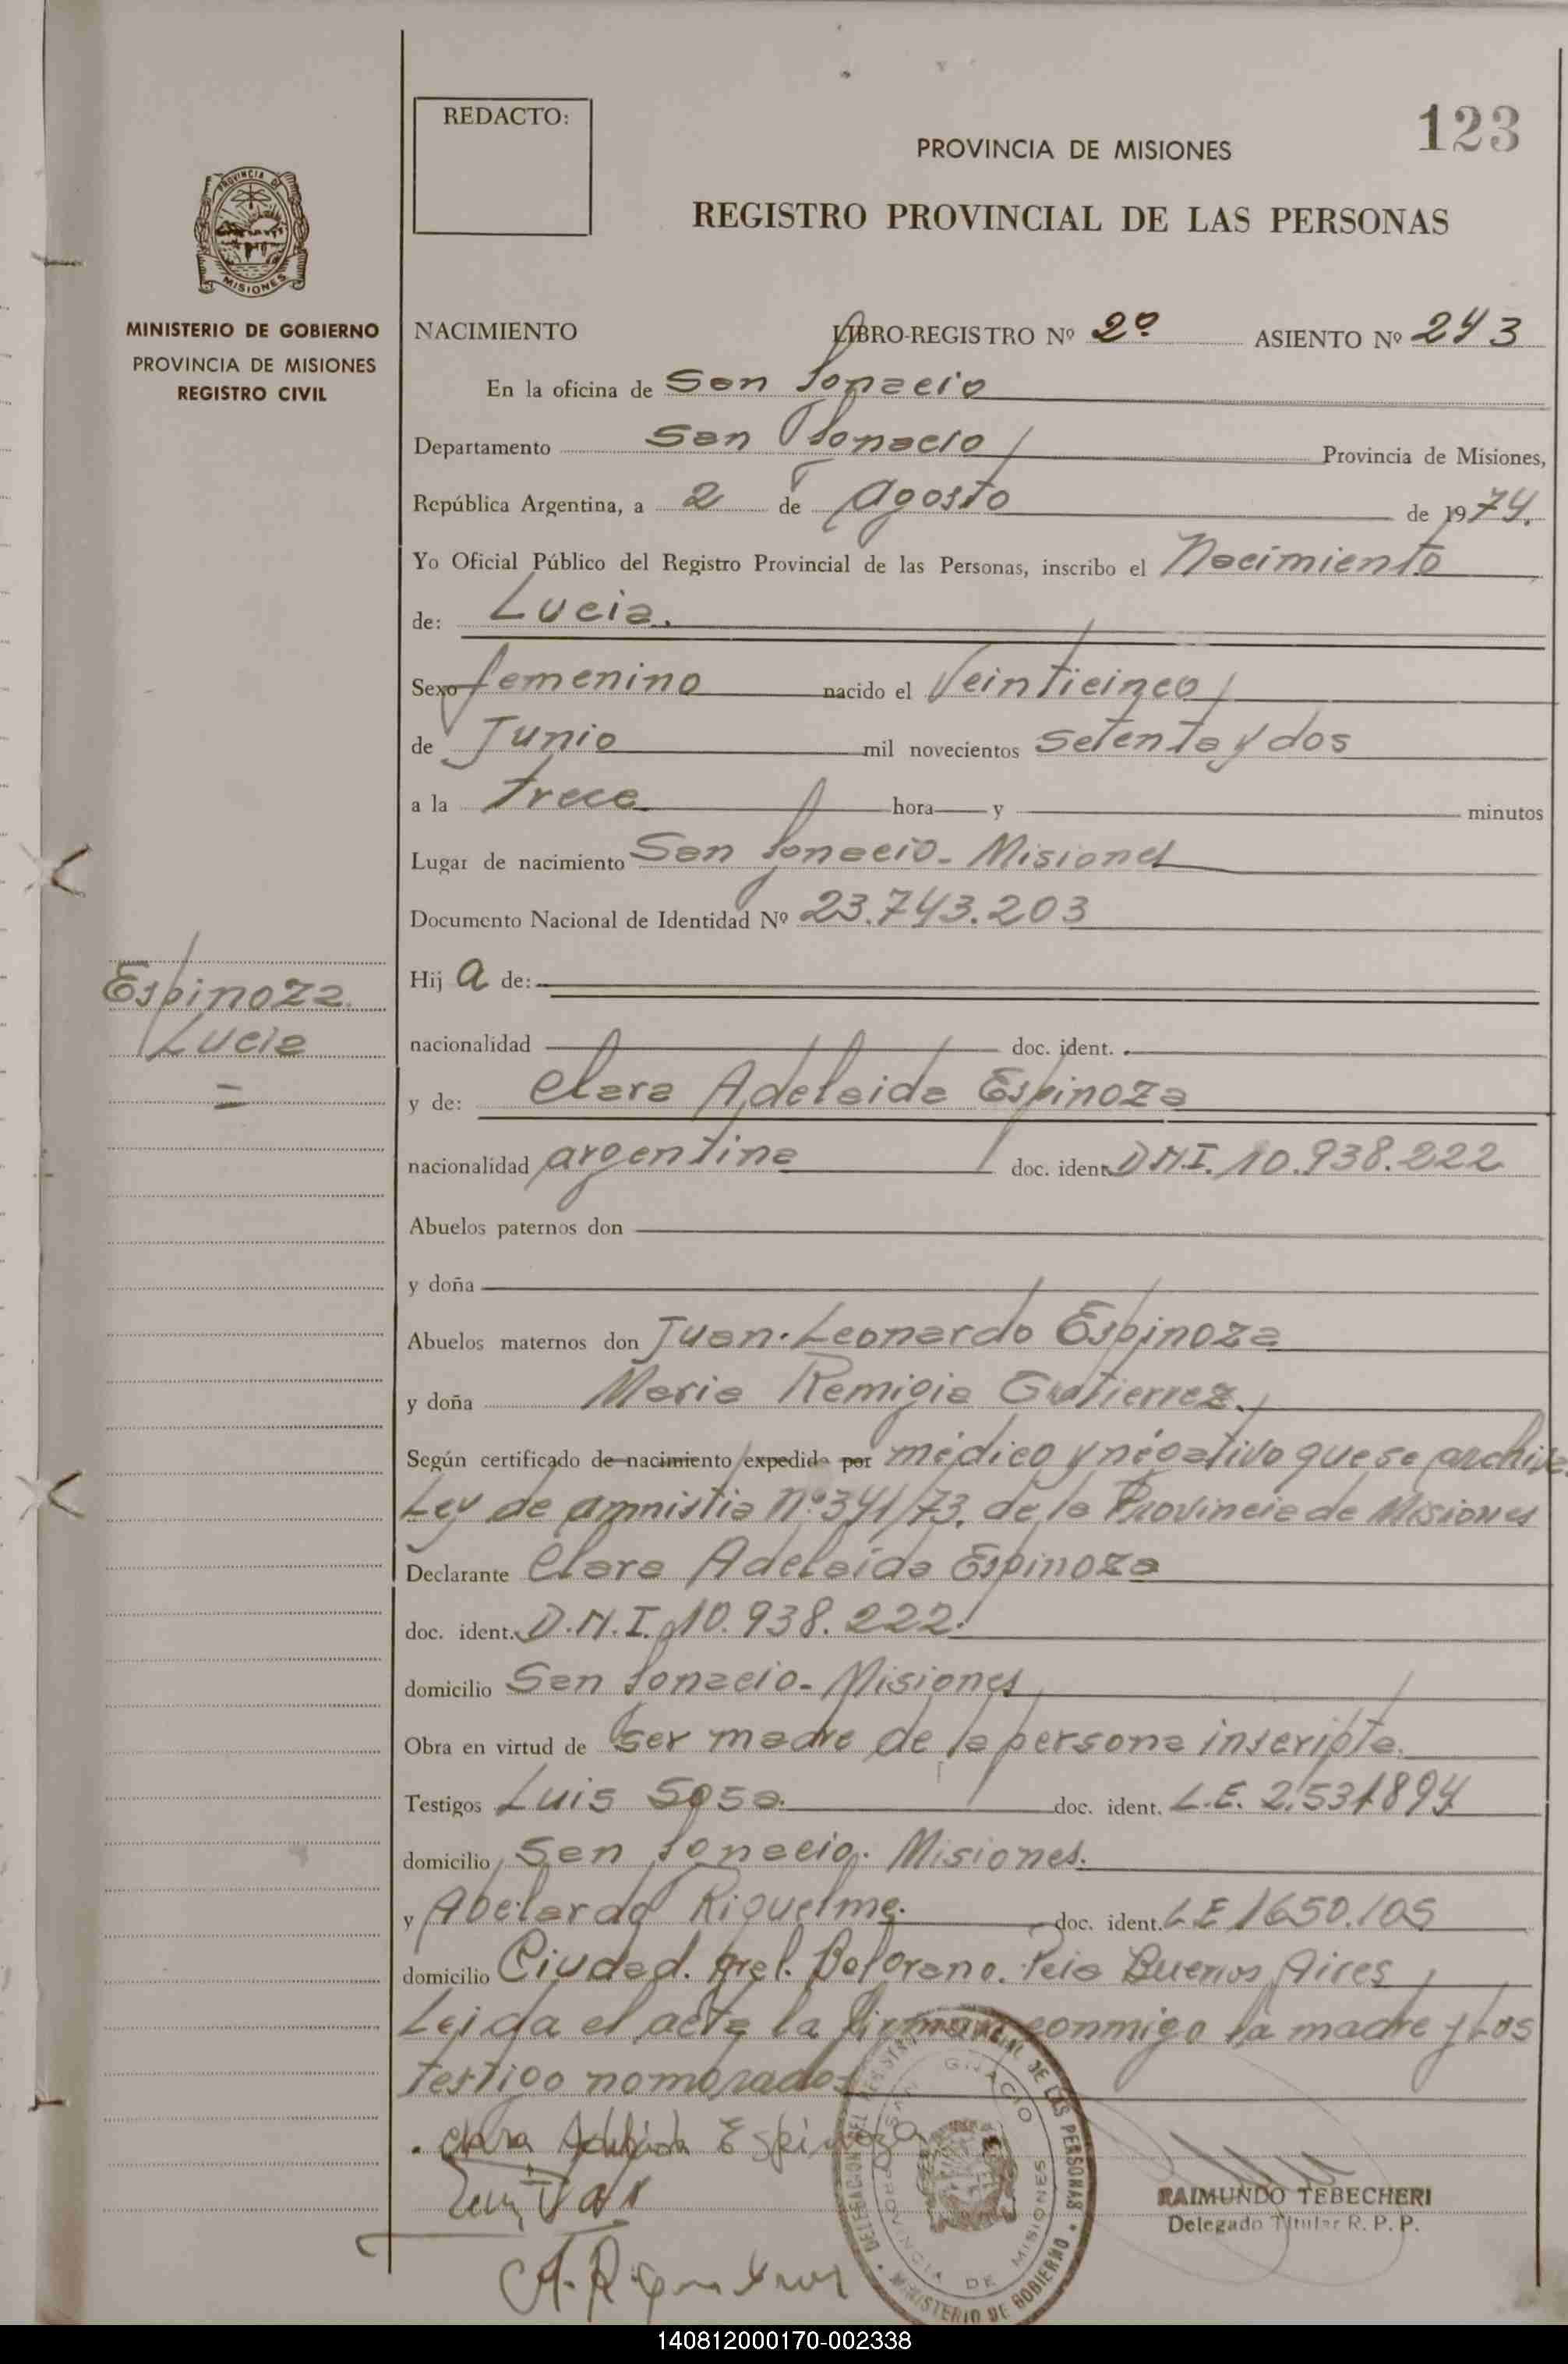 REDACTO:
123
PROVINCIA DE MISIONES
REGISTRO PROVINCIAL DE LAS PERSONAS
PROVINCIA DE
MISIONES
MINISTERIO DE GOBIERNO
PROVINCIA DE MISIONES
REGISTRO CIVIL
NACIMIENTO LIBRO-REGISTRO Nº 2º ASIENTO Nº 243
En la oficina de San Ignacio
Departamento San Ignacio Provincia de Misiones,
República Argentina, a 2 de Agosto de 1974.
Yo Oficial Público del Registro Provincial de las Personas, inscribo el Nacimiento
de: Lucia.
Sexo femenino nacido el Veinticinco
de Junio mil novecientos setenta y dos
a la trece hora y minutos
Lugar de nacimiento San Ignacio - Misiones
Documento Nacional de Identidad Nº 23.743.203
Espinoza
Lucia
=
Hij a de:
nacionalidad doc. ident.
y de: Clara Adelaida Espinoza
nacionalidad argentina doc. ident. D.N.I. 10.938.222
Abuelos paternos don
y doña
Abuelos maternos don Juan Leonardo Espinoza
y doña Maria Remigia Gutierrez.
Según certificado de nacimiento expedido por médico y négativo que se archiva
Ley de amnistia Nº 341/73. de la Provincia de Misiones
Declarante Clara Adelaida Espinoza
doc. ident. D.N.I. 10.938.222.
domicilio San Ignacio - Misiones
Obra en virtud de ser madre de la persona inscripta.
Testigos Luis Sosa. doc. ident. L.E. 2.531894
domicilio San Ignacio. Misiones.
y Abelardo Riquelme. doc. ident. L E 1650.105
domicilio Ciudad. Gral. Belgrano. Pcia Buenos Aires
Leida el acta la firman conmigo la madre y los
testigo nombrados
Clara Adelaida Espinoza
A. Riquelme
DELEGACION DEL REGISTRO PROVINCIAL DE LAS PERSONAS
SAN IGNACIO
PROVINCIA DE MISIONES
MINISTERIO DE GOBIERNO
RAIMUNDO TEBECHERI
Delegado Titular R. P. P.
140812000170-002338